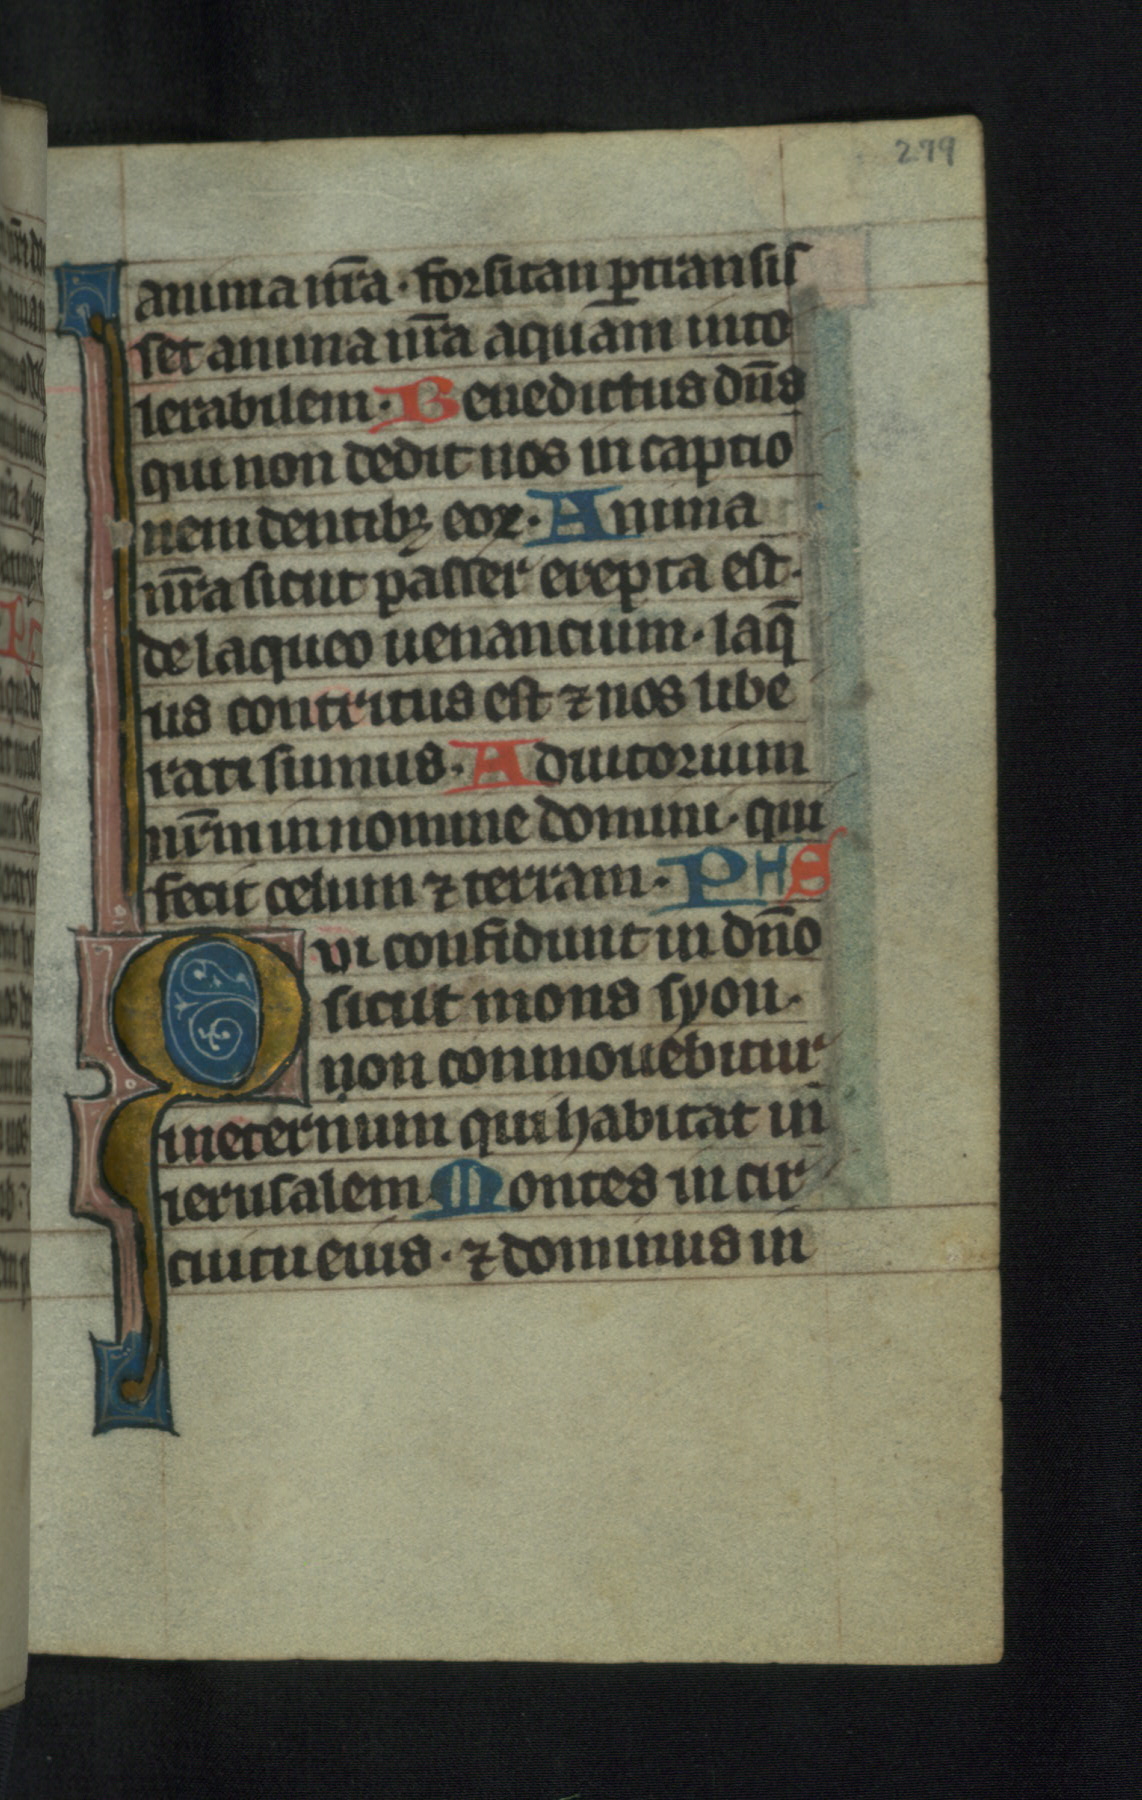 279
anima nr̄a · forsitan ꝑtransis
set anima nr̄a aquam into
lerabilem · Benedictus dn̄s
qui non dedit nos in captio
nem dentibꝫ eoꝝ · Anima
nr̄a sicut passer erepta est ·
de laqueo uenancium · laq̄
us contritus est ⁊ nos libe
rati sumus · Adiutorium
nr̄m in nomine domini · qui
fecit celum ⁊ terram · PHS
Qui confidunt in dn̄o
sicut mons syon ·
non conmouebitur
ineternum qui habitat in
ierusalem Montes in cir
cuitu eius · ⁊ dominus in